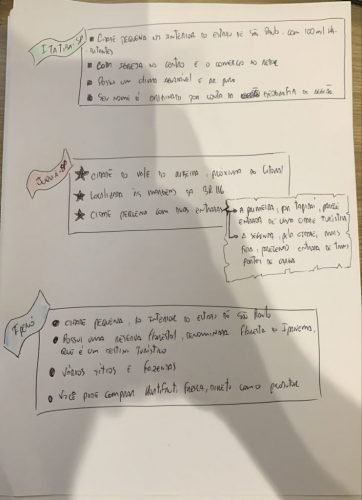 ITATIBA-SP
• CIDADE PEQUENA NO INTERIOR DO ESTADO DE SÃO PAULO, COM 100 mil HA-
BITANTES
• COM IGREJA NO CENTRO E O COMÉRCIO AO REDOR
• POSSUI UM CLIMA AGRADÁVEL E AR PURO
• SEU NOME É ORIGINADO POR CONTA DA GEOGRAFIA DA REGIÃO
★ CIDADE DO VALE DO RIBEIRA, PRÓXIMA AO LITORAL
★ LOCALIZADA ÀS MARGENS DA BR 116
★ CIDADE PEQUENA COM DUAS ENTRADAS
A PRIMEIRA, POR PARECE
ENTRADA DE UMA CIDADE TURÍSTICA
A SEGUNDA, PELO MAIS
FEIA, PARECENDO ENTRADA DE
PONTOS DE
IPERÓ
• CIDADE PEQUENA, NO INTERIOR DO ESTADO DE SÃO PAULO
• POSSUI UMA RESERVA FLORESTAL, DENOMINADA FLORESTA DO IPANEMA,
QUE É UM CENTRO TURÍSTICO
• VÁRIOS SÍTIOS E FAZENDAS
• VOCÊ PODE COMPRAR HORTIFRUTI, FRESCA, DIRETO COM O PRODUTOR